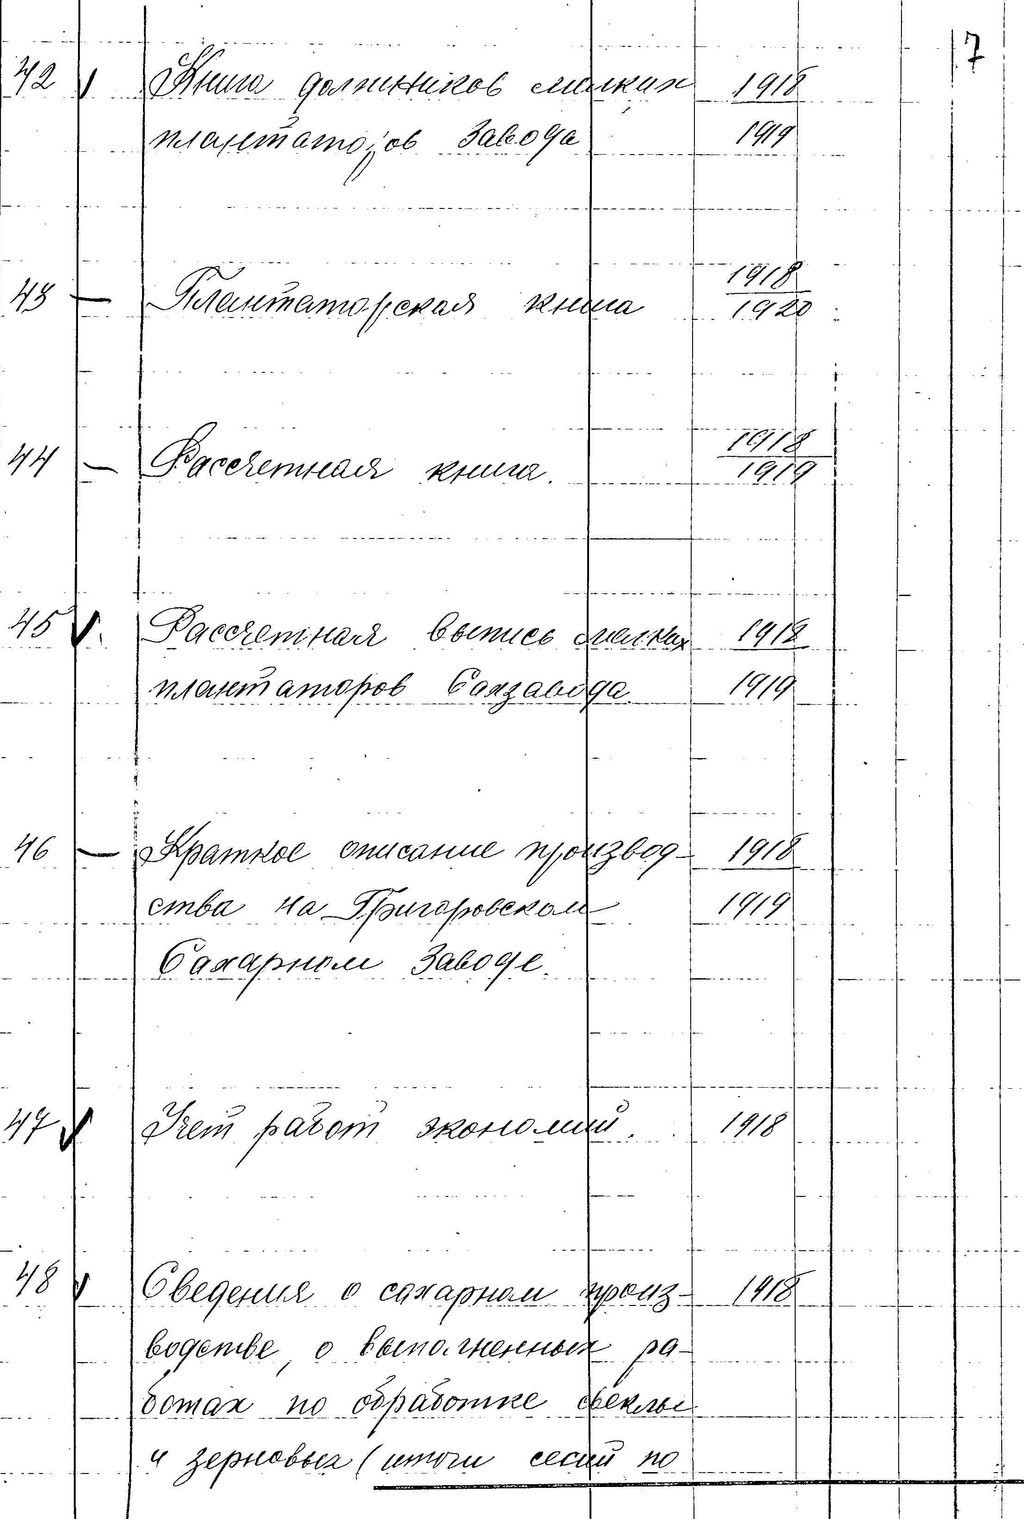 7
42 Книга должников мелких 1918
плантаторов Завода 1919
43 Плантаторская книга 1918
1920
44 Рассчетная книга. 1918
1919
45 Рассчетная выпись мелких 1918
плантаторов Сахзавода 1919
46 Краткое описание производ- 1918
ства на Григоровском 1919
Сахарном Заводе.
47 Учет работ экономий. 1918
48 Сведения о сахарном произ- 1918
водстве, о выполненных ра-
ботах по обработке свеклы
и зерновых (итоги сесий по